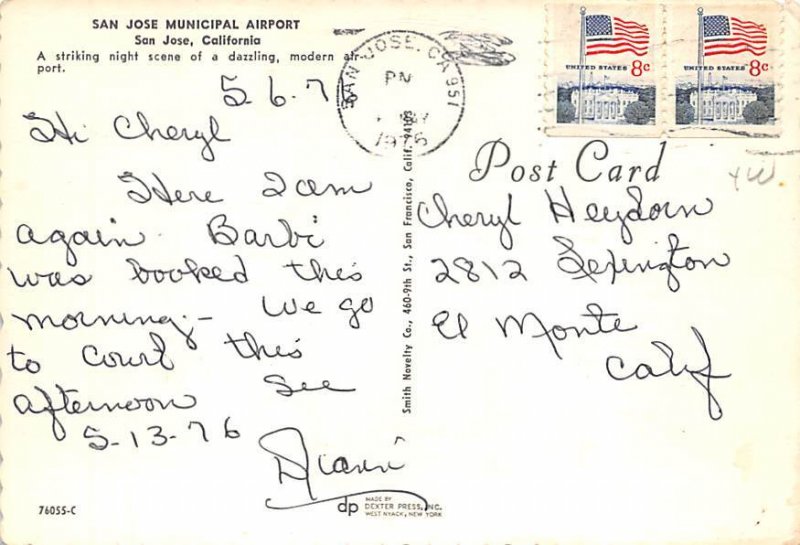 SAN JOSE MUNICIPAL AIRPORT
San Jose, California
A striking night scene of a dazzling, modern air-
port.
5-6-7
Hi Cheryl
Here I am
again. Barbi
was booked this
morning. - We go
to court this
afternoon See
5-13-76
Dianni
76055-C
Smith Novelty Co., 460-9th St., San Francisco, Calif. 94103
dp
MADE BY
DEXTER PRESS, INC.
WEST NYACK, NEW YORK
SAN JOSE, CA 951
PM
1976
UNITED STATES 8c
UNITED STATES 8c
Post Card
Cheryl Heydorn
2812 Lexington
El Monte
Calif